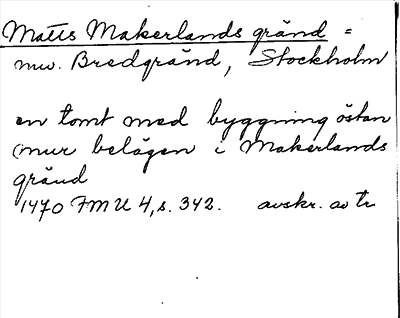 Matts Makerlands gränd =
nuv. Bredgränd, Stockholm
en tomt med byggning östan
mur belägen i Makerlands
gränd
1470 FMU 4, s. 342. avskr. av tr